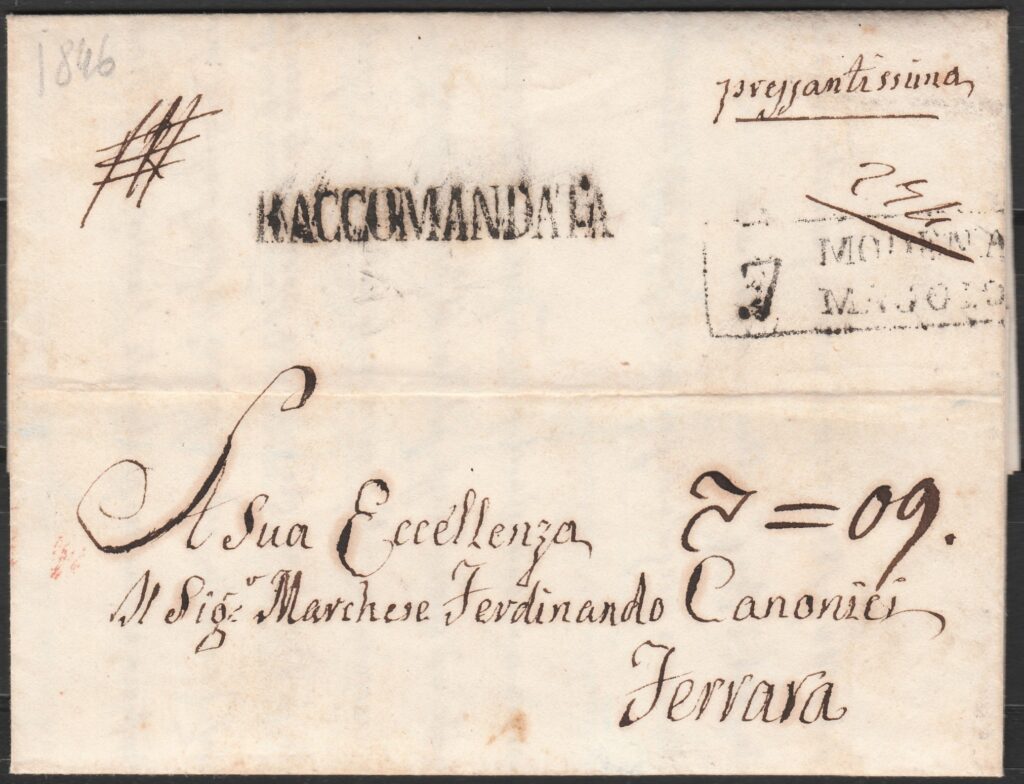 1846
pressantissima
RACCOMANDATA
MODENA
7 MAGGIO
A Sua Eccellenza
7=09.
Il Sig.o Marchese Ferdinando Canonici
Ferrara